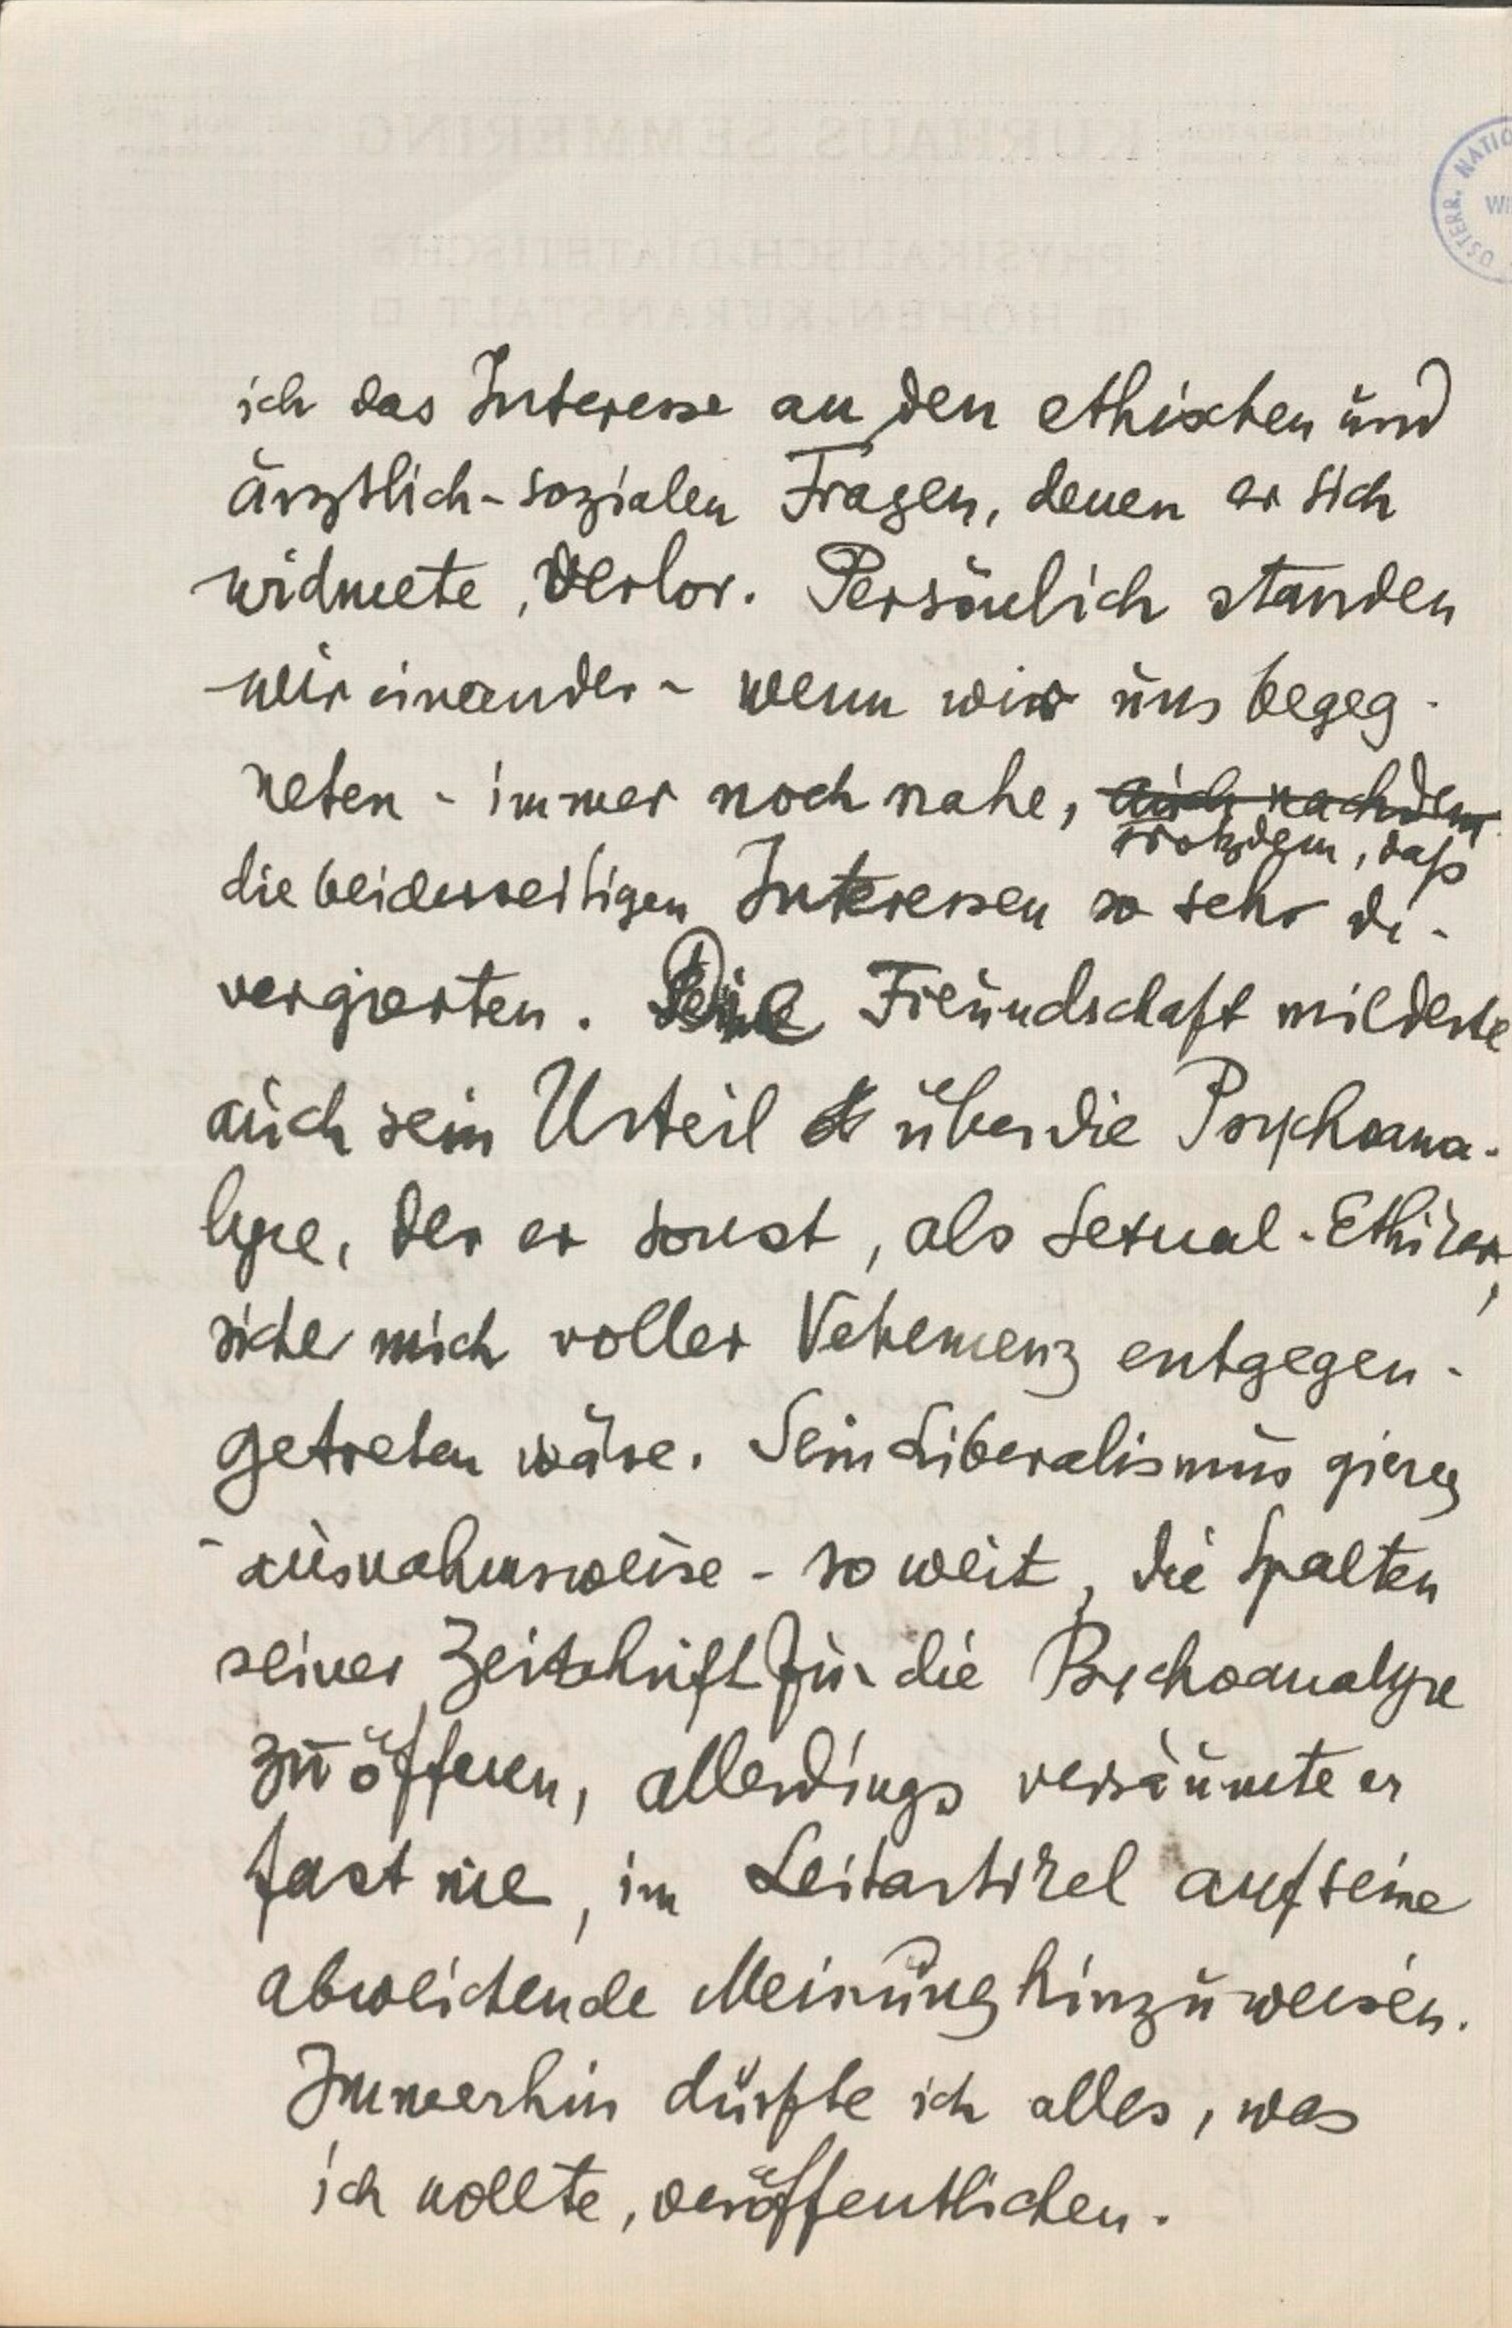 KURHAUS SEMMERING
PHYSIKALISCH-DIÄTETISCHE
HÖHEN-KURANSTALT
ÖSTERR. NATIO
WI
ich das Interesse an den ethischen und
ärztlich-sozialen Fragen, denen er sich
widmete, verlor. Persönlich standen
wir einander - wenn wir uns begeg-
neten - immer noch nahe, auch nachdem
trotzdem, daß
die beiderseitigen Interessen so sehr di-
vergierten. Die Freundschaft milderte
auch sein Urteil über die Psychoana-
lyse, der er sonst, als Sexual-Ethiker,
sicherlich voller Vehemenz entgegen-
getreten wäre. Sein Liberalismus gieng
- ausnahmsweise - so weit, die Spalten
seiner Zeitschrift für die Psychoanalyse
zu öffnen, allerdings versäumte er
fast nie, im Leitartikel auf seine
abweichende Meinung hinzuweisen.
Immerhin durfte ich alles, was
ich wollte, veröffentlichen.